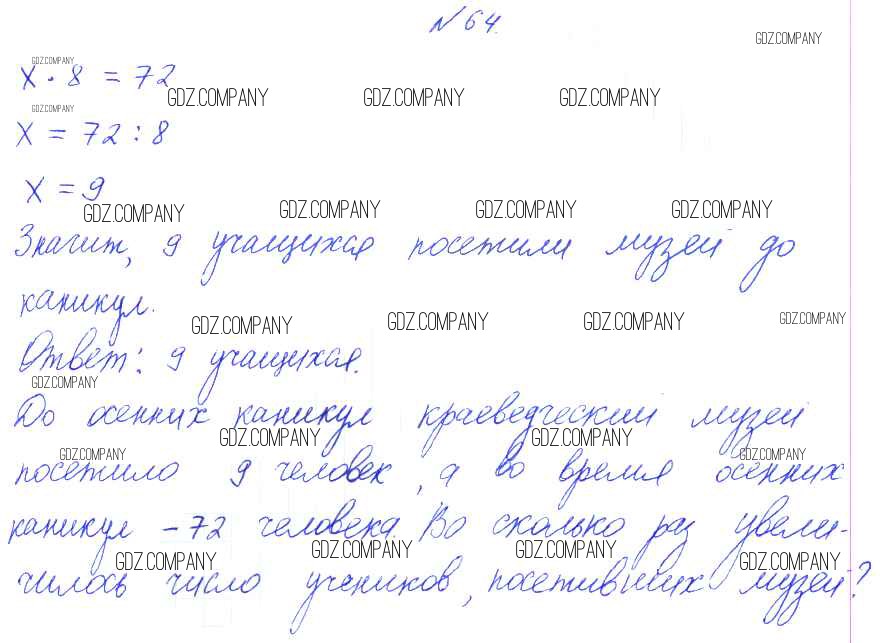 № 64.
GDZ.COMPANY
GDZ.COMPANY
x · 8 = 72
GDZ.COMPANY GDZ.COMPANY GDZ.COMPANY
GDZ.COMPANY
x = 72 : 8
x = 9
GDZ.COMPANY GDZ.COMPANY GDZ.COMPANY GDZ.COMPANY
Значит, 9 учащихся посетили музей до
каникул.
GDZ.COMPANY GDZ.COMPANY GDZ.COMPANY GDZ.COMPANY
Ответ: 9 учащихся.
GDZ.COMPANY
До осенних каникул краеведческий музей
GDZ.COMPANY GDZ.COMPANY
GDZ.COMPANY GDZ.COMPANY
посетило 9 человек, а во время осенних
каникул – 72 человека. Во сколько раз увели-
GDZ.COMPANY GDZ.COMPANY GDZ.COMPANY GDZ.COMPANY
чилось число учеников, посетивших музей?